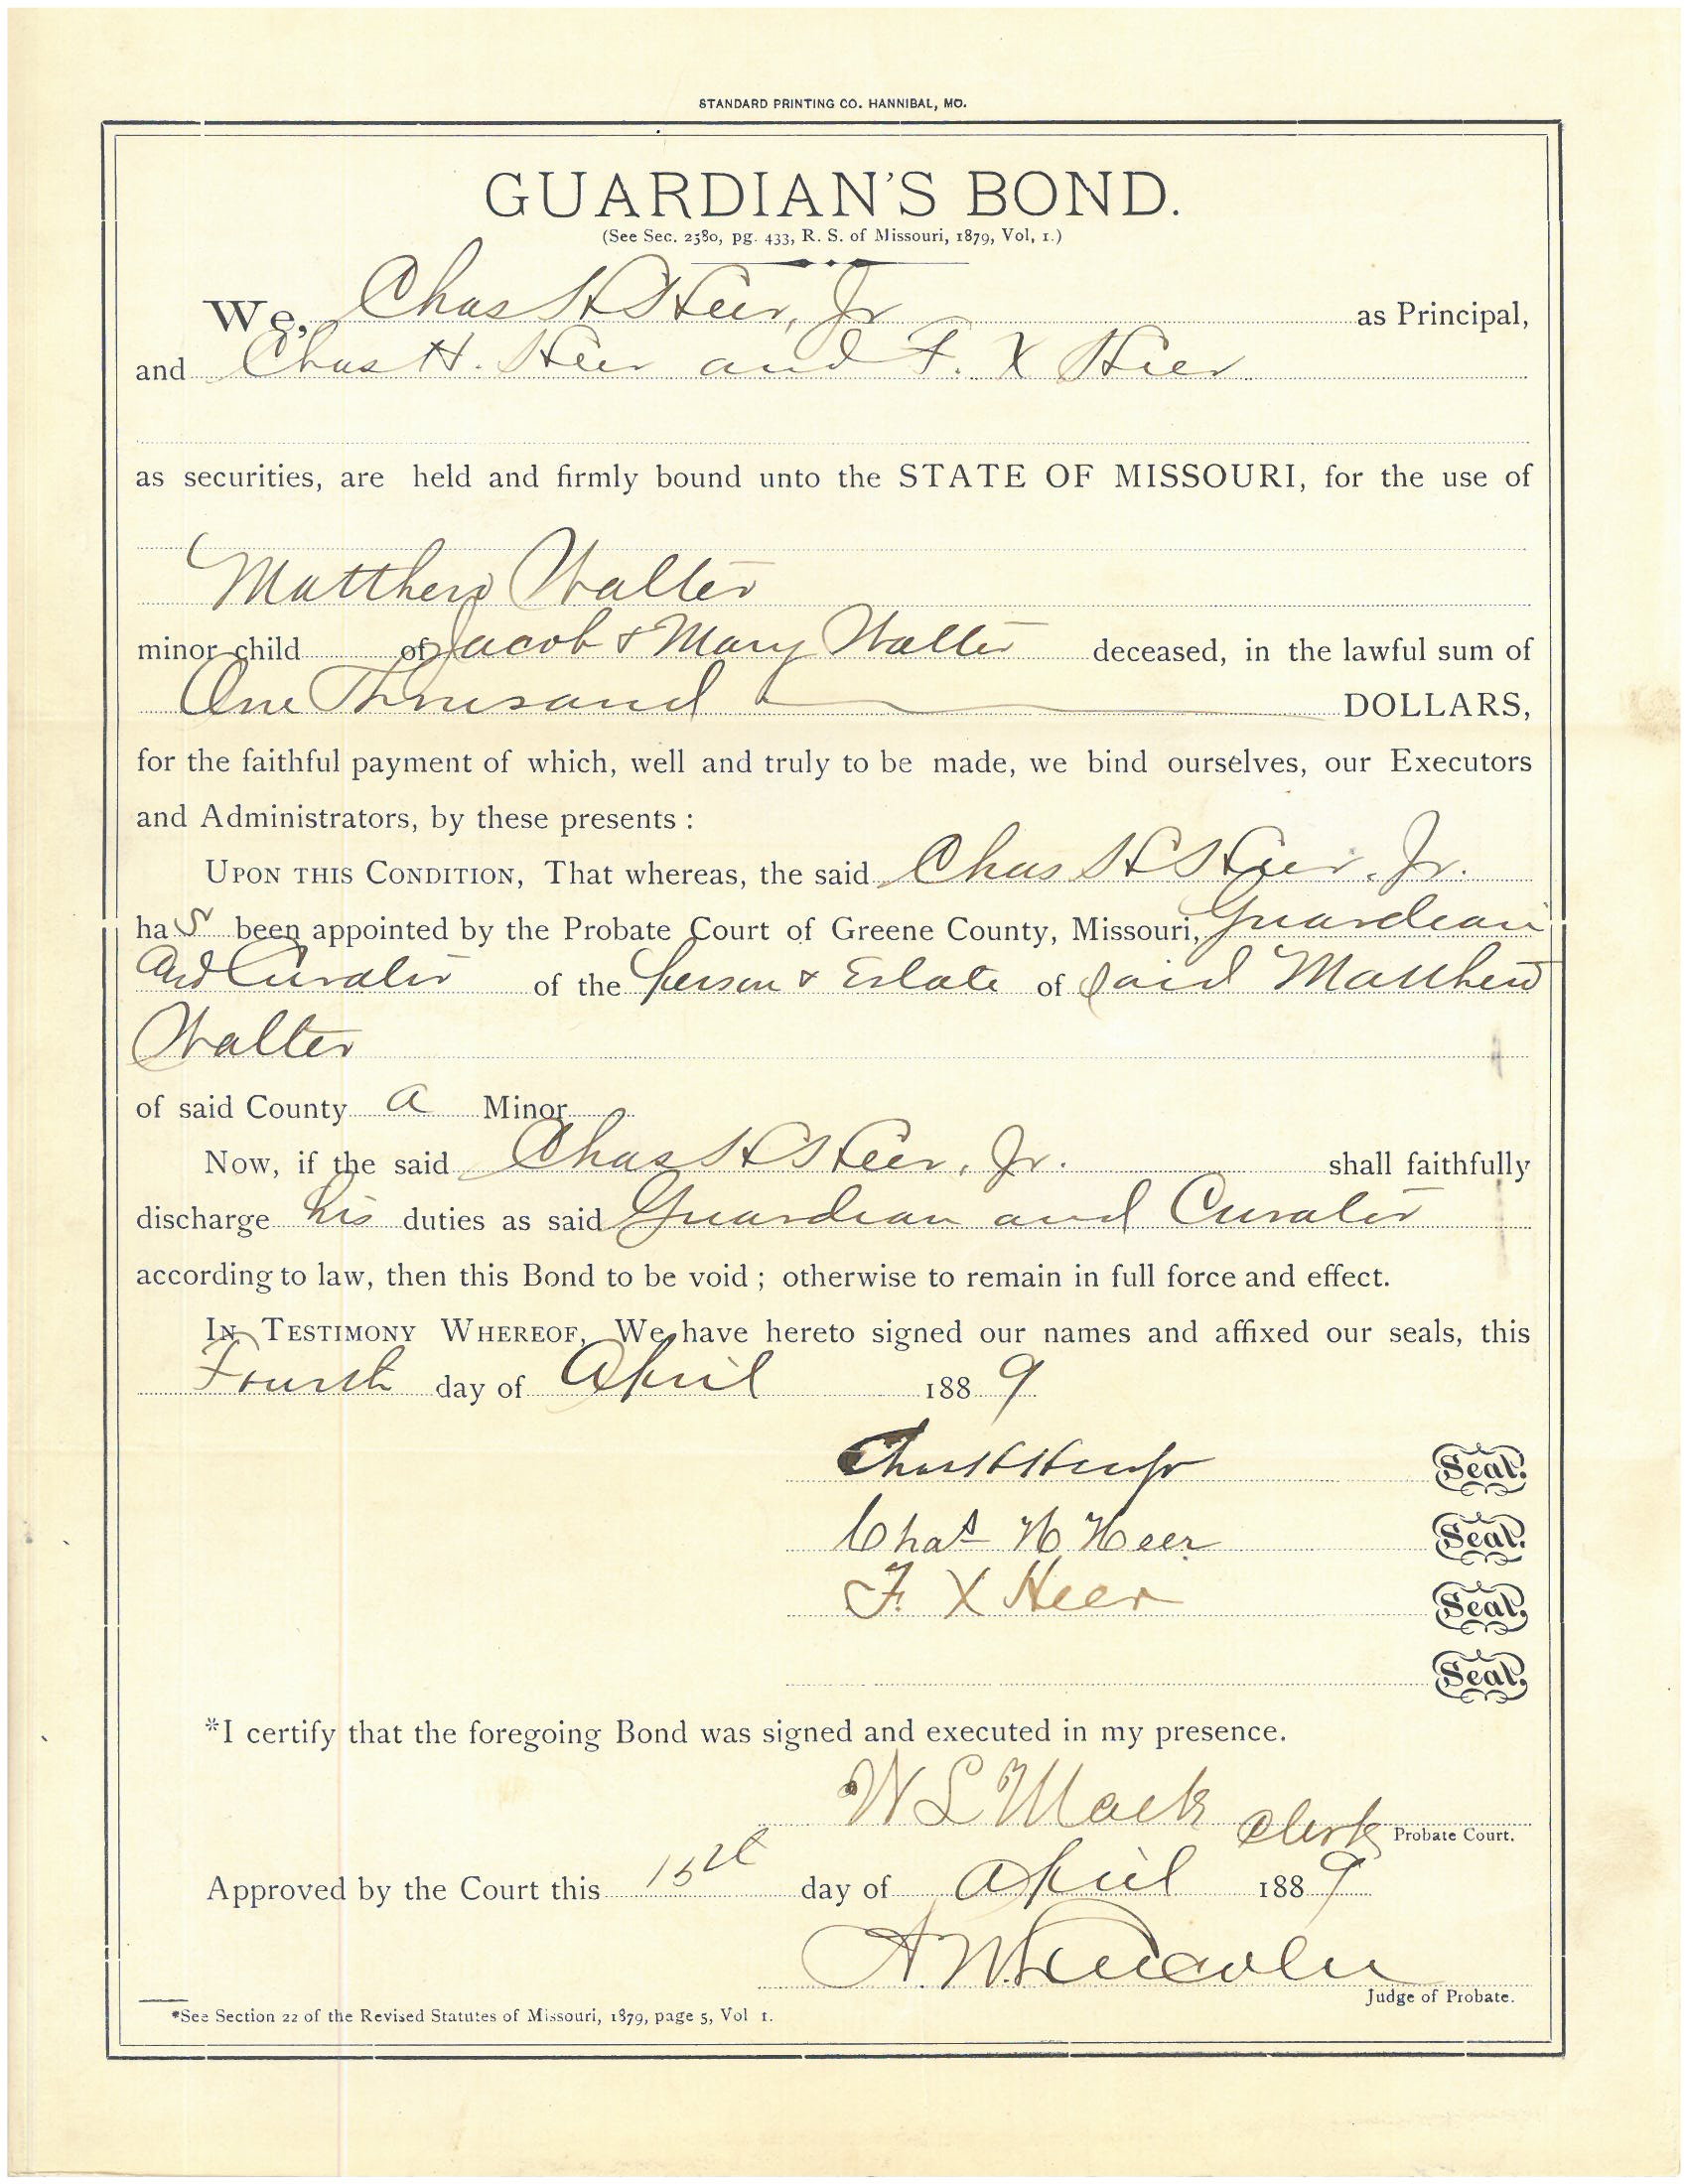 STANDARD PRINTING CO. HANNIBAL, MO.
GUARDIAN'S BOND.
(See Sec. 2580, pg. 433, R. S. of Missouri, 1879, Vol, 1.)
We, Chas H Heer, Jr as Principal,
and Chas H. Heer and F. X Heer
as securities, are held and firmly bound unto the STATE OF MISSOURI, for the use of
Matthew Walter
minor child of Jacob & Mary Walter deceased, in the lawful sum of
One Thousand DOLLARS,
for the faithful payment of which, well and truly to be made, we bind ourselves, our Executors
and Administrators, by these presents :
UPON THIS CONDITION, That whereas, the said Chas H Heer, Jr.
has been appointed by the Probate Court of Greene County, Missouri, Guardian
and Curator of the person & Estate of said Matthew
Walter
of said County a Minor
Now, if the said Chas H Heer, Jr. shall faithfully
discharge his duties as said Guardian and Curator
according to law, then this Bond to be void ; otherwise to remain in full force and effect.
IN TESTIMONY WHEREOF, We have hereto signed our names and affixed our seals, this
Fourth day of April 1889
Chas H Heer Jr Seal.
Chas H Heer Seal.
F. X Heer Seal.
Seal.
*I certify that the foregoing Bond was signed and executed in my presence.
W L Mack Clerk Probate Court.
Approved by the Court this 15th day of April 1889
A. W. Lincoln
Judge of Probate.
*See Section 22 of the Revised Statutes of Missouri, 1879, page 5, Vol 1.